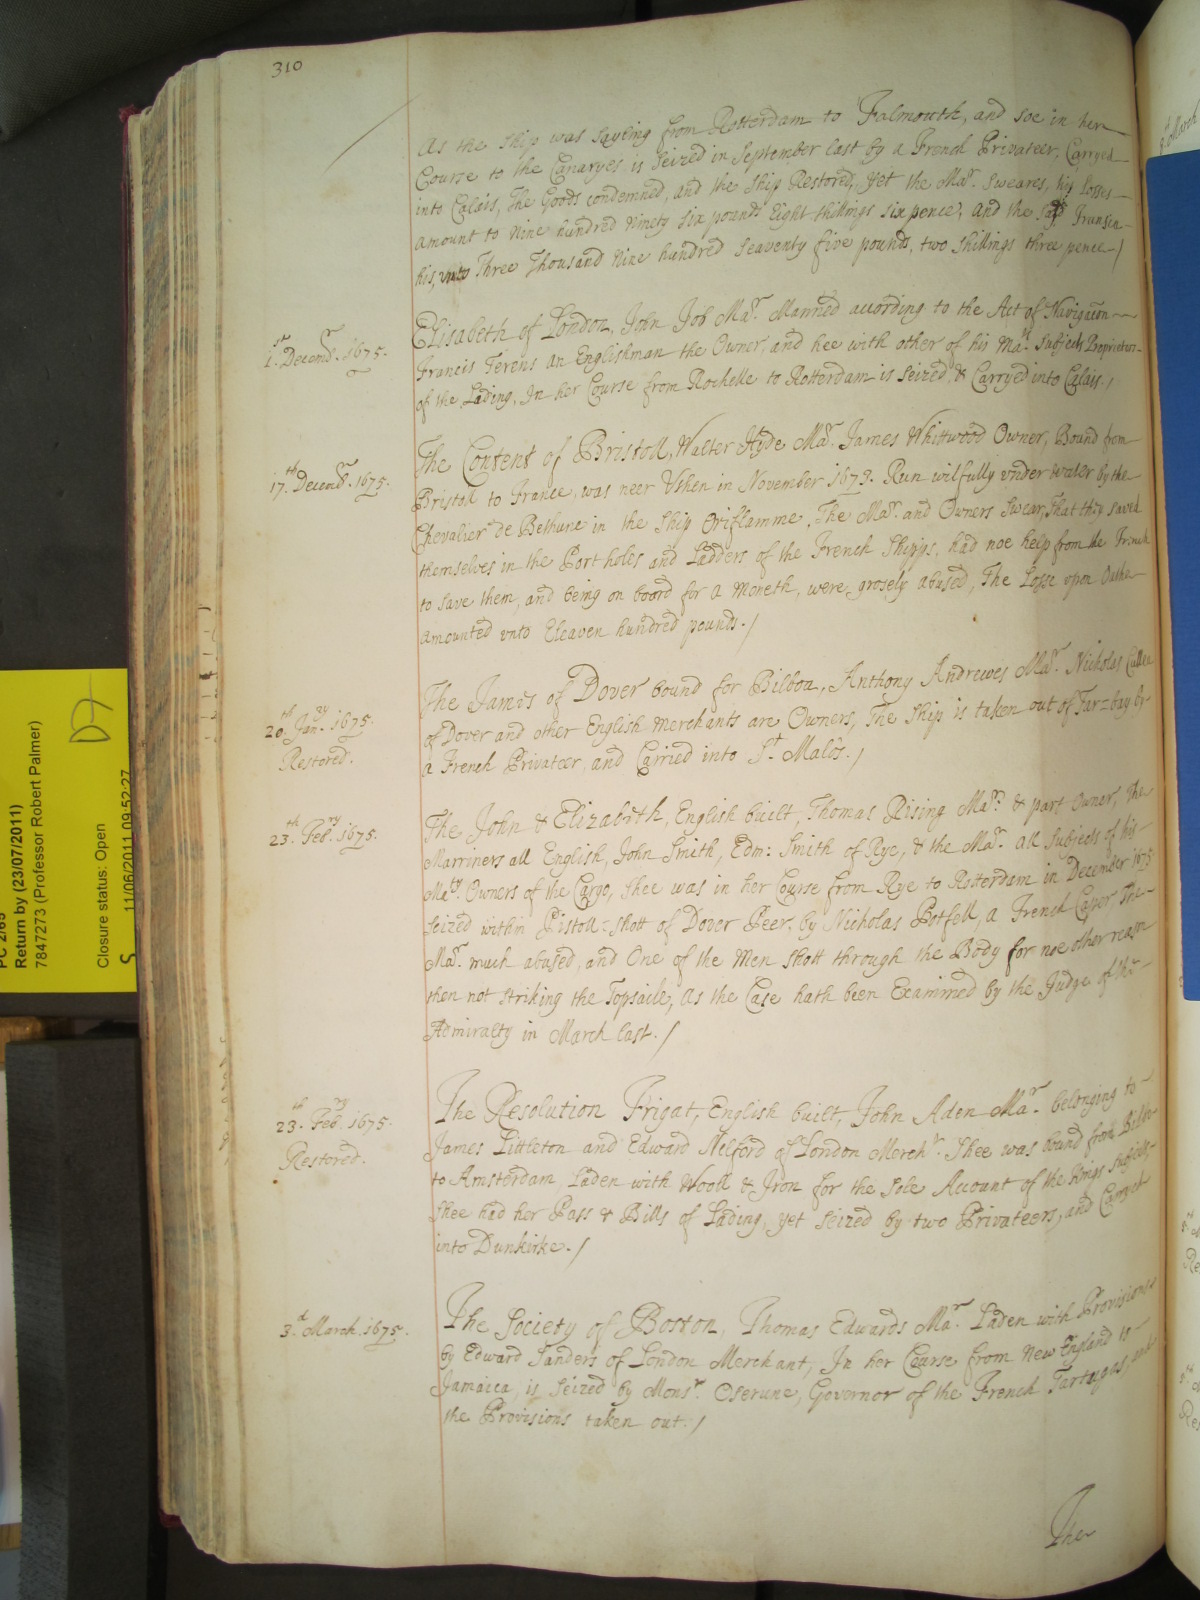 310
As the Ship was sayling from Rotterdam to Falmouth, and soe in her
Course to the Canaryes is Seized in September last by a French Privateer, Carryed
into Calais, The Goods condemned, and the Ship Restored, yet the Mar. Sweares, his Losses
amount to Nine hundred Ninety six pounds Eight shillings six pence, and the sayd
his, unto Three Thousand Nine hundred seaventy five pounds, two shillings three pence /
1st Decembr. 1675.
Elisabeth of London, John Job Mar. Manned according to the Act of Navigacon
Francis Terens an Englishman the Owner, and hee with other of his Mats. Subjects Proprietors
of the Lading, In her Course from Rochelle to Rotterdam is Seized, & Carryed into Calais. /
17th Decembr. 1675.
The Content of Bristoll, Walter Hyde Mar. James Whittwood Owner, Bound from
Bristol to France, was neer Ushen in November 1673. Run wilfully under water by the
Chevalier de Bethune in the Ship Oriflamme, The Mar. and Owners Swear, That they saved
themselves in the Port holes and Ladders of the French Shipps, had noe help from the French
to save them, and being on board for a Moneth, were grosely abused, The Losse upon Oathe
amounted unto Eleaven hundred pounds. /
20th Janry. 1675.
Restored.
The James of Dover bound for Bilboa, Anthony Andrewes Mar. Nicholas Cullen
of Dover and other English Merchants are Owners, The Ship is taken out of Tar=bay by
a French Privateer, and Carried into St. Malo's. /
23th Febry. 1675.
The John & Elizabeth, English built, Thomas Rising Mar. & part Owner, The
Marriners all English, John Smith, Edm: Smith of Rye, & the Mar. all Subjects of his
Mats. Owners of the Cargo, Shee was in her Course from Rye to Rotterdam in December 1675
seized within Pistoll=shott of Dover Peer, by Nicholas Potfell, a French Caper, The
Mar. much abused, and One of the Men shott through the Body for noe other reason
then not striking the Topsaile, as the Case hath been Examined by the Judge of the
Admiralty in March last. /
23th Febry. 1675.
Restored.
The Resolution Frigat, English built, John Aden Mar. belonging to
James Littleton and Edward Nelford of London Merchts. Shee was bound from Bilbo
to Amsterdam, Laden with Wooll & Iron for the Sole Account of the Kings Subjects,
Shee had her Pass & Bills of Lading, yet seized by two Privateers, and Carryed
into Dunkirke. /
3d March 1675.
The Society of Boston, Thomas Edwards Mar. Laden with Provisions
by Edward Sanders of London Merchant, In her Course from New England to
Jamaica, is Seized by Monsr. Oserune, Governor of the French Tartugas, and
the Provisions taken out. /
The
PC 2/65
Return by (23/07/2011)
7847273 (Professor Robert Palmer)
Closure status: Open
S 11/06/2011 09:52:27